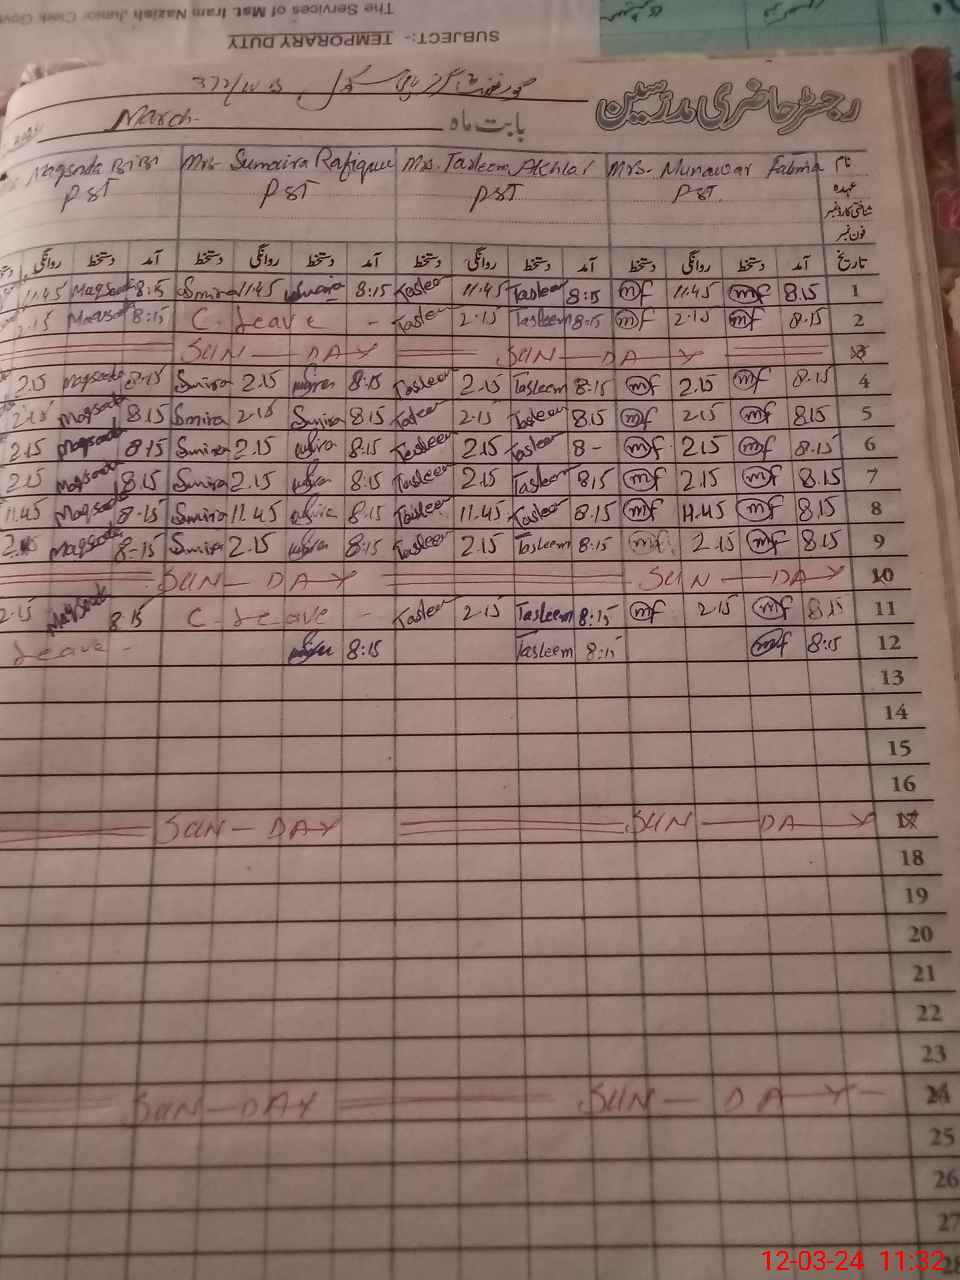 The Services of Mst. Iram Nazish Junior Clerk Govt
SUBJECT:- TEMPORARY DUTY
رجسٹر حاضری مدرسین 372/WB
بابت ماہ March
نام Mrs. Munawar Fatma Mrs. Tasleem Akhtar Mrs. Sumaira Rafique Maqsoda BiBi
عہدہ PST. PST PST PST
شناختی کارڈ نمبر
فون نمبر
تاریخ آمد دستخط روانگی دستخط آمد دستخط روانگی دستخط آمد دستخط روانگی دستخط آمد دستخط روانگی
1 8.15 mf 11.45 mf 8:15 Tasleem 11.45 Tasleem 8:15 11.45 Smira 8:15 Maqsoda 11.45
2 8.15 mf 2.15 mf 8.15 Tasleem 2.15 Tasleem - C. Leave 8:15 Maqsoda 2.15
3 SUN — DAY SUN — DAY
4 8.15 mf 2.15 mf 8:15 Tasleem 2.15 Tasleem 8:15 2.15 Smira 8.15 Maqsoda 2.15
5 8.15 mf 2.15 mf 8.15 Tasleem 2.15 Tasleem 8.15 Smira 2.15 Smira 8.15 Maqsoda 2.15
6 8.15 mf 2.15 mf 8 - Tasleem 2.15 Tasleem 8:15 2.15 Smira 8.15 Maqsoda 2.15
7 8.15 mf 2.15 mf 8.15 Tasleem 2.15 Tasleem 8.15 2.15 Smira 8.15 Maqsoda 2.15
8 8.15 mf 11.45 mf 8.15 Tasleem 11.45 Tasleem 8.15 11.45 Smira 8-15 Maqsoda 11.45
9 8.15 mf 2.15 mf 8:15 Tasleem 2.15 Tasleem 8:15 2.15 Smira 8-15 Maqsoda
10 SUN — DAY SUN — DAY
11 8.15 mf 2.15 mf 8:15 Tasleem 2.15 Tasleem - C Leave 8.15 Maqsoda 2.15
12 8:15 mf 8:15 Tasleem 8:15 Leave -
13
14
15
16
17 SUN — DAY SUN — DAY
18
19
20
21
22
23
24 SUN — DAY — SUN — DAY
25
26
27
28
12-03-24 11:32